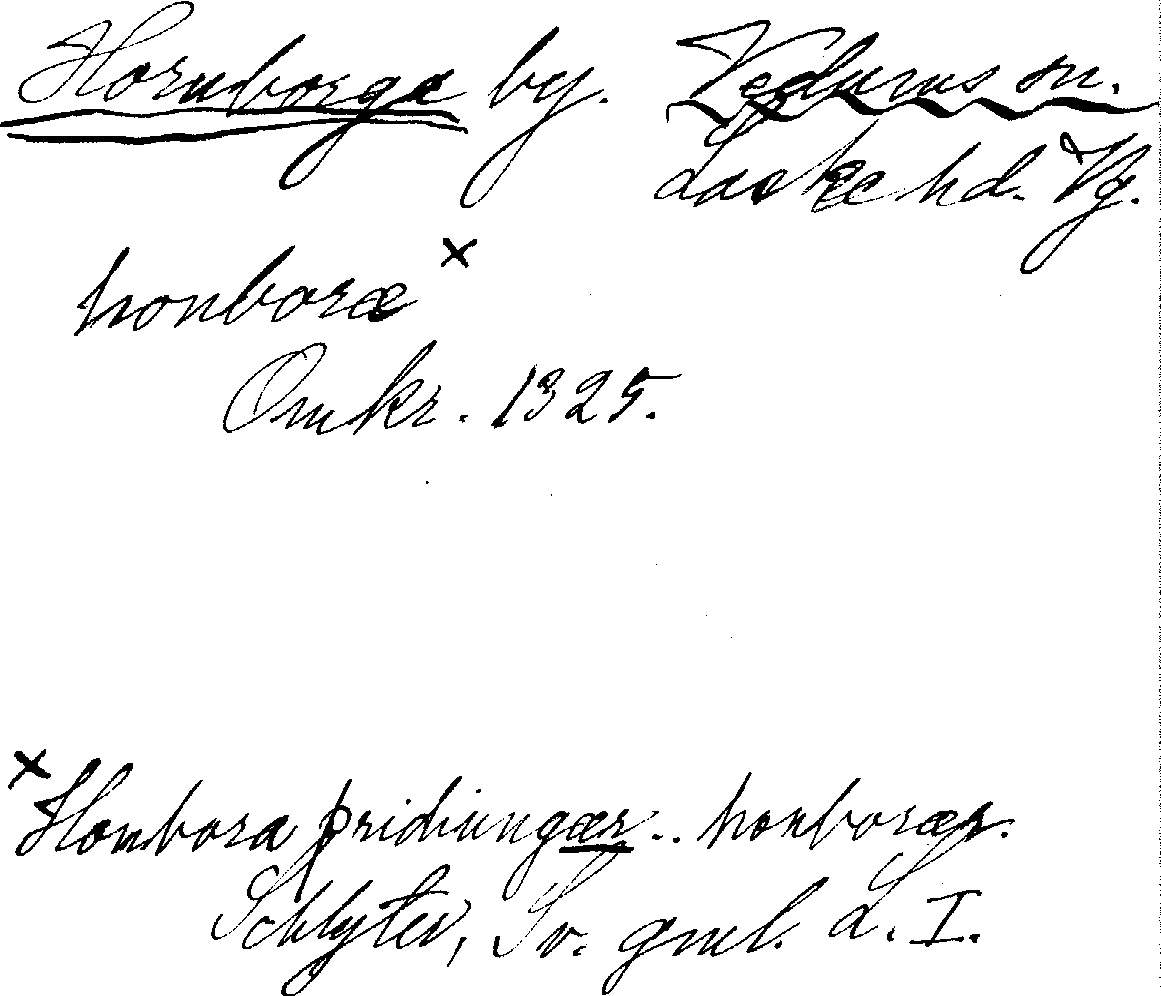 Hornborga by. Vedums sn.
Laske hd. Vg.
honboræ ×
Omkr. 1325.
× Honbora þridiungær .. honboræ.
Schlyter, Sv. gml. L. I.